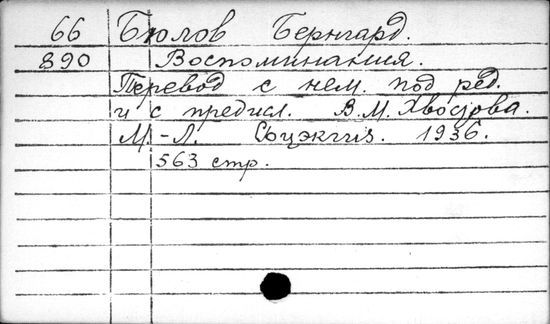 66 Бюлов Бернгард.
890 Воспоминания.
Перевод с нем. под ред.
и с предисл. В.М. Хвостова.
М.-Л. Соцэкгиз. 1936.
563 стр.